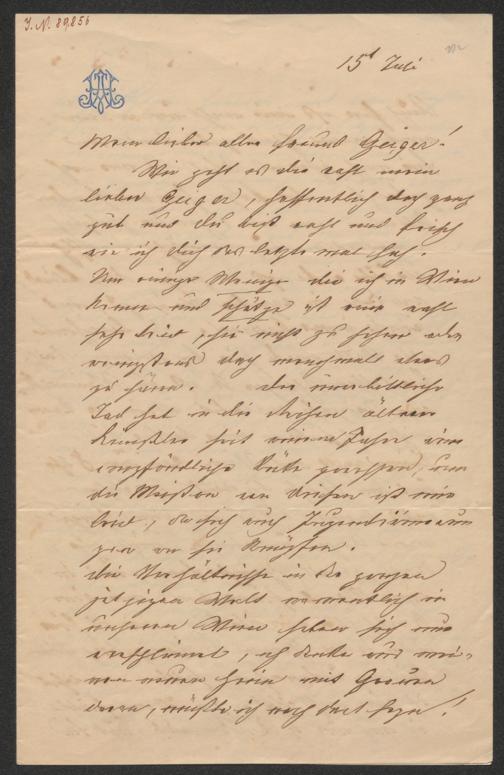 J. N. 89.856
15t Juli
Mein lieber alter Freund Geiger!
Wie geht es dir recht mein
lieber Geiger, hoffentlich doch ganz
gut und du bist wohl und frisch
wie ich dich das letzte mal sah.
Um einige Wenige die ich in Wien
kenne und schätze ist mir recht
sehr leid, sie nicht zu sehen oder
wenigstens doch manchmal etwas
zu hören. Der unerbittliche
Tod hat in die Reihen älterer
Künstler seit einem Jahr eine
empfindliche Lücke gerissen,
die Meisten von diesen ist mir
leid, da sich auch Jugenderinnerun
gen an sie knüpfen.
Die Verhältnisse in der ganzen
jetzigen Welt namentlich in
unserem Wien haben sich nur
verschlimmert, ich denke nur mei-
nen neuen Heim mit Grausen
daran, müßte ich noch dort sein!